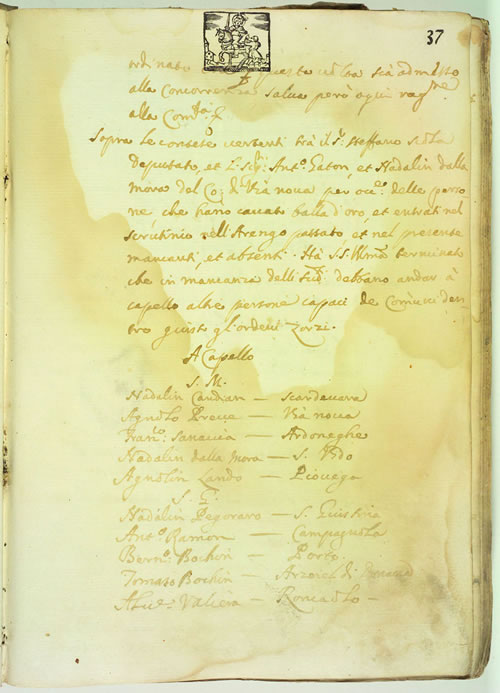 37
ordinato questo sia admesso
alla Concorrenza salva però ogni rag.ne
alla Com.tà
Sopra le contese vertenti trà il S.r steffano
Deputato, et Ant.o Gaton, et Nadalin dalla
mora del Co: di Vià nova per occ.e delle perso-
ne, che hano cavato balla d'oro, et entrati nel
scrutinio nell'Arengo passato, et nel presente
mancanti, et absenti. Hà S.S. Ill.ma terminato
che in mancanza delli debbano andar à
capello altre persone capaci de Comuni den-
tro giusto gl'ordeni Zorzi.
A Capello
S. M.
Nadalin Candian — Scardevara
Agnolo Preve — Vià nova
Fran.co Sanavia — Ardoneghe
Nadalin dalla Mora — S. Vido
Agnolin Lando — Piovega
S. G.
Nadalin Pegoraro — S. Giustina
Ant.o Ramon — Campagnola
Bern.o Bochin — Porto
Tomaso Bochin — Arzer di
Valiera — Roncaolo —